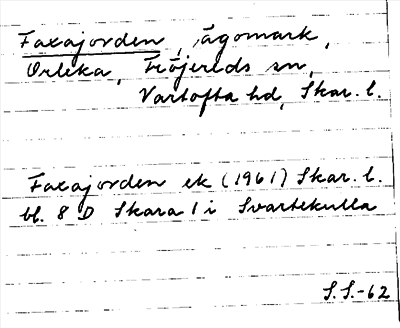 Faxajorden, ägomark,
Orleka, Fröjereds sn,
Vartofta hd, Skar. l.
Faxajorden ek (1961) Skar. l.
bl. 8 D Skara 1 i Svartekulla
S.S.-62